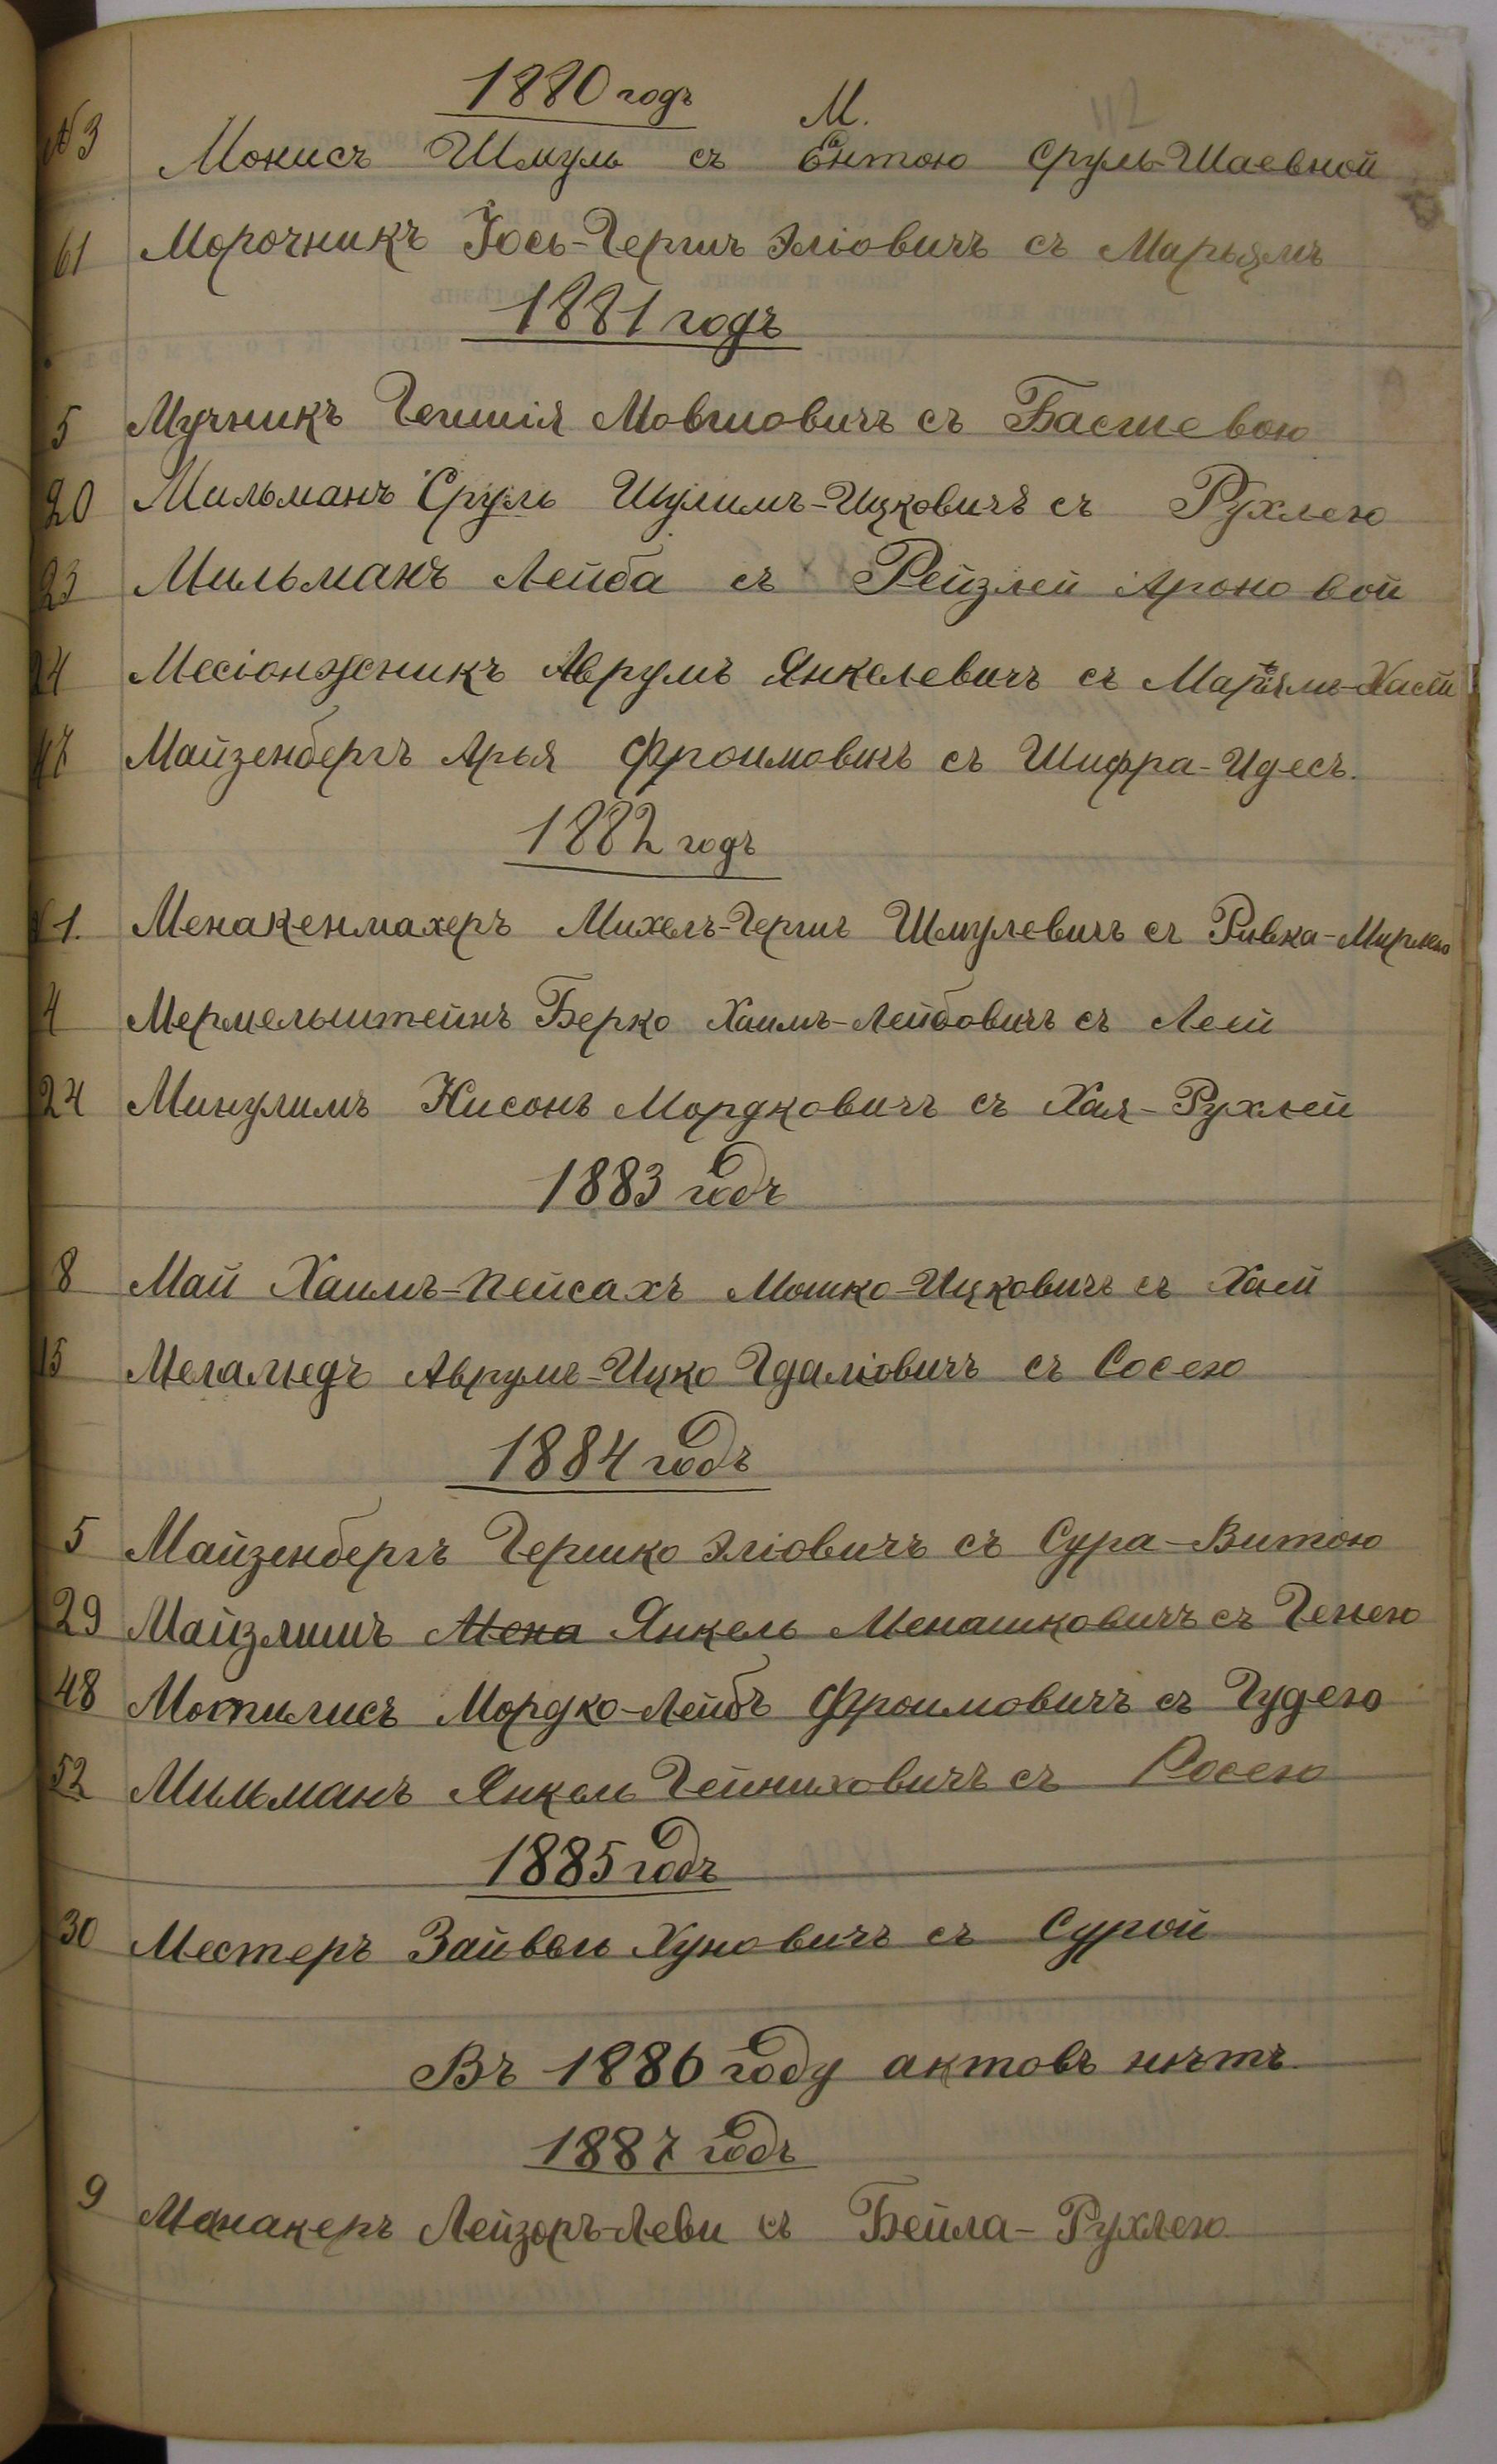 1880 годъ
М.
112
№3 Монисъ Шмуль съ Ентою Сруль-Шаевной
61 Морочникъ Іось-Гершъ Эліовичъ съ Марьямъ
1881 годъ
5 Мучникъ Гешшія Мовшовичъ съ Басшевою
20 Мильманъ Сруль Шулимъ-Ицковичъ съ Рухлею
23 Мильманъ Лейба съ Рейзлей Ароновой
24 Месіонжникъ Аврумъ Янкелевичъ съ Марьямъ-Хаей
47 Майзенбергъ Арья Фроимовичъ съ Шифра-Идесъ.
1882 годъ
№1. Менакенмахеръ Михель-Гершъ Шмулевичъ съ Ривка-Мирлею
4 Мермельштейнъ Берко Хаимъ-Лейбовичъ съ Леей
24 Минулимъ Нисонъ Мордковичъ съ Хая-Рухлей
1883 годъ
8 Май Хаимъ-Пейсахъ Мошко-Ицковичъ съ Хаей
15 Меламедъ Аврумъ-Ицко Гдаліовичъ съ Сосею
1884 годъ
5 Майзенбергъ Гершко Эліовичъ съ Сура-Витою
29 Майзлишъ Мена Янкель Менашковичъ съ Генею
48 Мотилисъ Мордко-Лейбъ Фроимовичъ съ Гудею
52 Мильманъ Янкель Гейниховичъ съ Росею
1885 годъ
30 Местеръ Зайвель Хуновичъ съ Сурой
Въ 1886 году актовъ нѣтъ.
1887 годъ
9 Манакеръ Лейзоръ-Леви съ Бейла-Рухлею